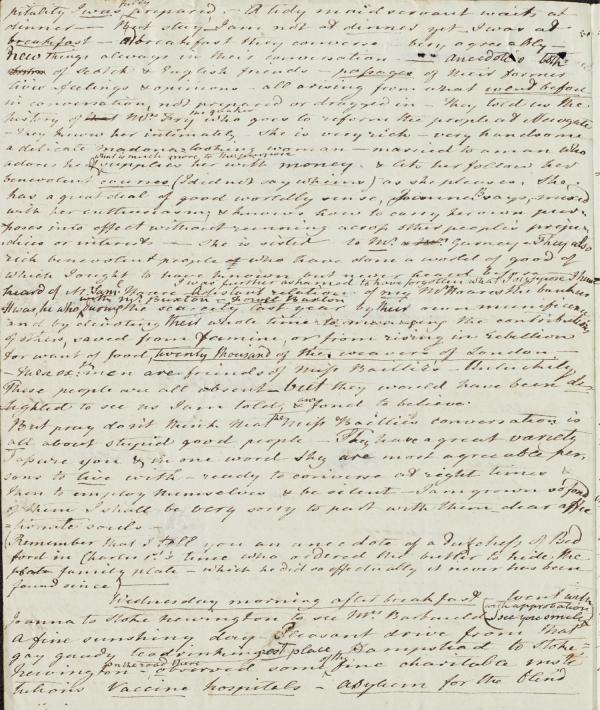 pitality I was prepared; A tidy maid servant waits at
dinner — But stay I am not at dinner yet, I was at
breakfast — At breakfast they converse — very agreeably —
New things always in their conversation — anecdotes both
of Scotch & English friends — passages of their former
lives feelings & opinions — all arising from what went before
in conversation, not prepared or dragged in — They told us the
history of Mrs. Fry the Quaker who goes to reform the people at Newgate
— They know her intimately — She is very rich — very handsome
a delicate madona-looking woman — married to a man who
adores her & what is much more to the purpose supplies her with money & lets her follow her
benevolent courses (I did not say whims) as she pleases. She
has a great deal of good worldly sense, Joanna B says, mixed
with her enthusiasm; & knows how to carry her own pur-
poses into effect without running across other people's preju-
dices or interest — She is sister to Mr. Gurney — They also
rich benevolent people who have done a world of good of
which I ought to have known but never heard before.
I was further ashamed to have forgotten what if any one I have
heard of relation of Mrs Hoares the bankers
It was he who with Mr Buxton & during the scarcity last year by their own munificence
and by devoting their whole time to managing the contributions
of others, saved from famine, or from rising in rebellion
for want of food, twenty thousand of the weavers of London —
These men are friends of Miss Baillies — Unluckily
These people are all absent — but they would have been de-
lighted to see us I am told, & am fond to believe.
But pray don't think that the Miss Baillies conversation is
all about stupid good people — They have a great variety
I assure you & in one word they are most agreeable per-
sons to live with — ready to converse at right times &
then to employ themselves & be silent — I am grown so fond
of them I shall be very sorry to part with them dear affec
-tionate souls —
(Remember that I tell you an anecdote of a Dutchess of Bed
ford in Charles 1st's time who ordered the butler to hide the
family plate — which he did so effectually it never has been
found since)
Wednesday morning after breakfast went with
Joanna to Stoke Newington to see Mrs Barbauld (with approbation I see you smile)
A fine sunshiny day Pleasant drive from that
gay gaudy tea drinking-est place Hampstead to Stoke-
Newington — on the road there observed some of the fine charitable insti
tutions Vaccine hospitals — Asylum for the blind